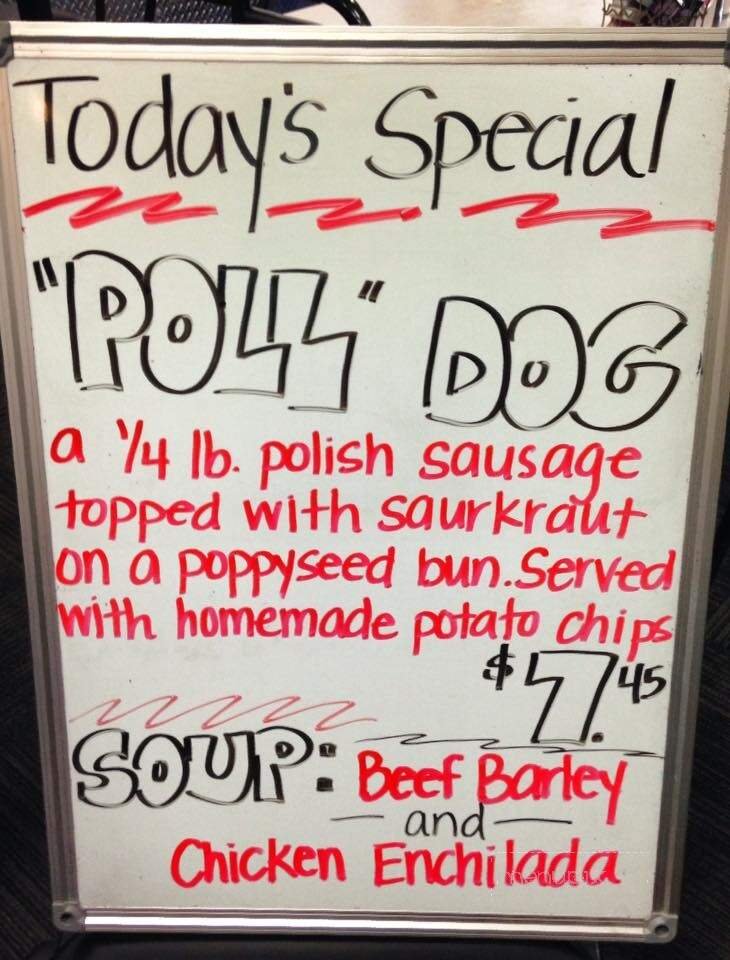 Today's Special
"POLL" DOG
a 1/4 lb. polish sausage
topped with saurkraut
on a poppyseed bun. Served
with homemade potato chips
$7.45
SOUP: Beef Barley
and
Chicken Enchilada